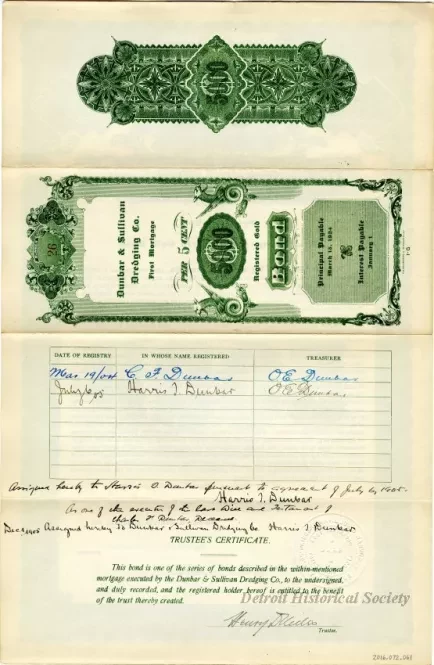 5000
26
Dunbar & Sullivan
Dredging Co.
First Mortgage
5 PER CENT
5000
Registered Gold
Bond
Principal Payable
March 15, 1924
Interest Payable
January 1
DATE OF REGISTRY IN WHOSE NAME REGISTERED TREASURER
Mar 19/04 C. F. Dunbar O E Dunbar
July 6/05 Harris T. Dunbar O E Dunbar
Assigned hereby to Harris T. Dunbar pursuant to agreement of July 6, 1905.
Harris T. Dunbar
As one of the executors of the Last Will and Testament of
Charles F Dunbar Deceased.
Assigned hereby to Dunbar & Sullivan Dredging Co. Harris T. Dunbar
TRUSTEE'S CERTIFICATE.
This bond is one of the series of bonds described in the within-mentioned
mortgage executed by the Dunbar & Sullivan Dredging Co., to the undersigned,
and duly recorded, and the registered holder hereof is entitled to the benefit
of the trust thereby created.
Detroit Historical Society
Henry
Trustee.
2016.072.061